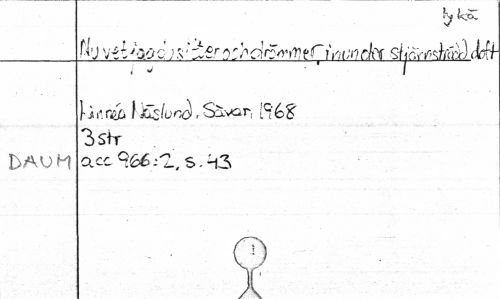 lykå
Nu vet jag du sitter och drömmer, inunder stjärnströdd doft
Linnéa Näslund, Sävar, 1968
3 str
DAUM acc 966:2, s. 43